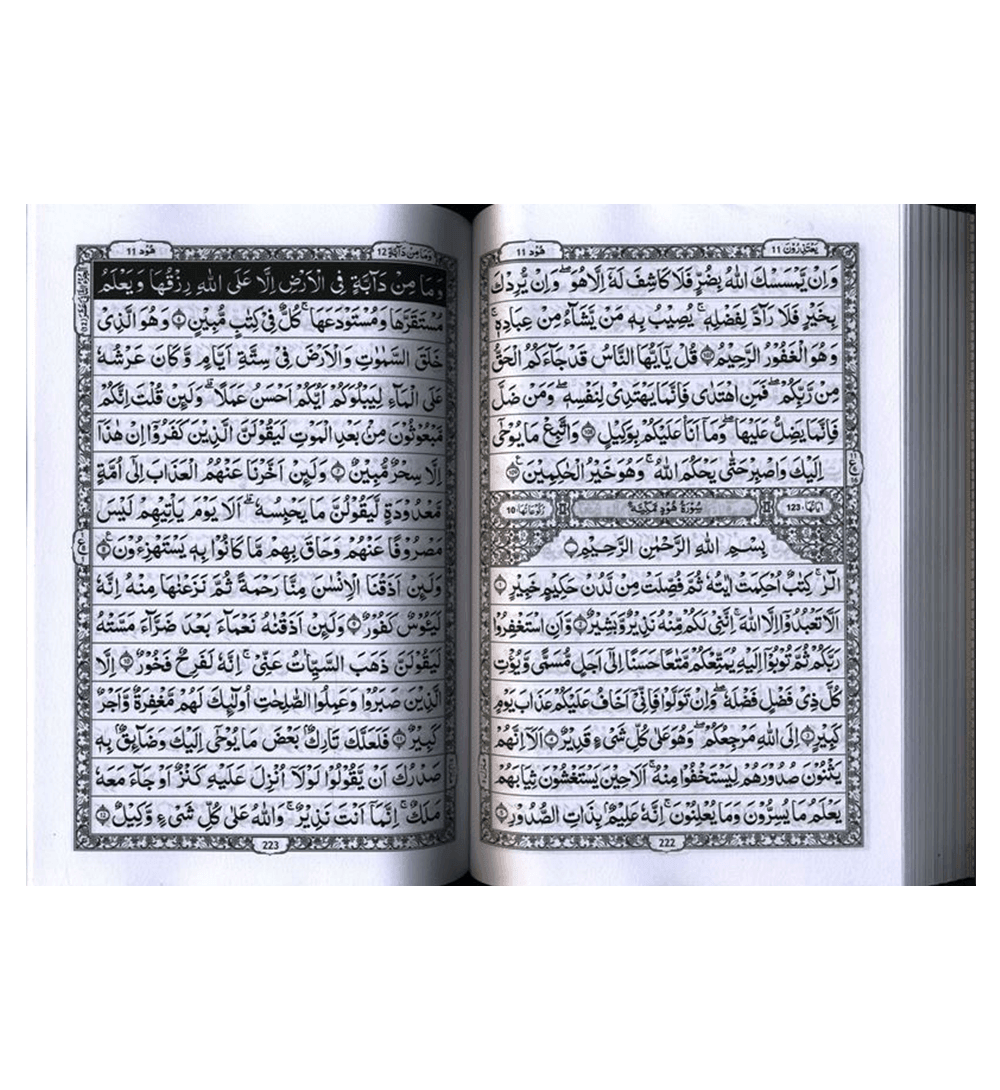 يَعْتَذِرُوْنَ 11
هُوْد 11
وَاِنْ يَّمْسَسْكَ اللّٰهُ بِضُرٍّ فَلَا كَاشِفَ لَهٗۤ اِلَّا هُوَ ۚ وَاِنْ يُّرِدْكَ
بِخَيْرٍ فَلَا رَآدَّ لِفَضْلِهٖ ؕ يُصِيْبُ بِهٖ مَنْ يَّشَآءُ مِنْ عِبَادِهٖ ؕ
وَهُوَ الْغَفُوْرُ الرَّحِيْمُ ﴿١٠٧﴾ قُلْ يٰۤاَيُّهَا النَّاسُ قَدْ جَآءَكُمُ الْحَقُّ
مِنْ رَّبِّكُمْ ۚ فَمَنِ اهْتَدٰى فَاِنَّمَا يَهْتَدِىْ لِنَفْسِهٖ ۚ وَمَنْ ضَلَّ
فَاِنَّمَا يَضِلُّ عَلَيْهَا ۚ وَمَاۤ اَنَا عَلَيْكُمْ بِوَكِيْلٍ ﴿١٠٨﴾ وَاتَّبِعْ مَا يُوْحٰۤى
اِلَيْكَ وَاصْبِرْ حَتّٰى يَحْكُمَ اللّٰهُ ۚ وَهُوَ خَيْرُ الْحٰكِمِيْنَ ﴿١٠٩﴾
اٰيَاتُهَا 123
سُوْرَةُ هُوْدٍ مَّكِّيَّةٌ
رُكُوْعَاتُهَا 10
بِسْمِ اللّٰهِ الرَّحْمٰنِ الرَّحِيْمِ
الٓرٰ ۚ كِتٰبٌ اُحْكِمَتْ اٰيٰتُهٗ ثُمَّ فُصِّلَتْ مِنْ لَّدُنْ حَكِيْمٍ خَبِيْرٍ ﴿١﴾
اَلَّا تَعْبُدُوْۤا اِلَّا اللّٰهَ ؕ اِنَّنِىْ لَكُمْ مِّنْهُ نَذِيْرٌ وَّبَشِيْرٌ ﴿٢﴾ وَّاَنِ اسْتَغْفِرُوْا
رَبَّكُمْ ثُمَّ تُوْبُوْۤا اِلَيْهِ يُمَتِّعْكُمْ مَّتٰعًا حَسَنًا اِلٰۤى اَجَلٍ مُّسَمًّى وَّيُؤْتِ
كُلَّ ذِىْ فَضْلٍ فَضْلَهٗ ؕ وَاِنْ تَوَلَّوْا فَاِنِّىْۤ اَخَافُ عَلَيْكُمْ عَذَابَ يَوْمٍ
كَبِيْرٍ ﴿٣﴾ اِلَى اللّٰهِ مَرْجِعُكُمْ ۚ وَهُوَ عَلٰى كُلِّ شَىْءٍ قَدِيْرٌ ﴿٤﴾ اَلَاۤ اِنَّهُمْ
يَثْنُوْنَ صُدُوْرَهُمْ لِيَسْتَخْفُوْا مِنْهُ ؕ اَلَا حِيْنَ يَسْتَغْشُوْنَ ثِيَابَهُمْ
يَعْلَمُ مَا يُسِرُّوْنَ وَمَا يُعْلِنُوْنَ ۚ اِنَّهٗ عَلِيْمٌۢ بِذَاتِ الصُّدُوْرِ ﴿٥﴾
222
وَمَا مِنْ دَآبَّةٍ 12
هُوْد 11
وَمَا مِنْ دَآبَّةٍ فِى الْاَرْضِ اِلَّا عَلَى اللّٰهِ رِزْقُهَا وَيَعْلَمُ
مُسْتَقَرَّهَا وَمُسْتَوْدَعَهَا ؕ كُلٌّ فِىْ كِتٰبٍ مُّبِيْنٍ ﴿٦﴾ وَهُوَ الَّذِىْ
خَلَقَ السَّمٰوٰتِ وَالْاَرْضَ فِىْ سِتَّةِ اَيَّامٍ وَّكَانَ عَرْشُهٗ
عَلَى الْمَآءِ لِيَبْلُوَكُمْ اَيُّكُمْ اَحْسَنُ عَمَلًا ؕ وَلَئِنْ قُلْتَ اِنَّكُمْ
مَّبْعُوْثُوْنَ مِنْۢ بَعْدِ الْمَوْتِ لَيَقُوْلَنَّ الَّذِيْنَ كَفَرُوْۤا اِنْ هٰذَاۤ
اِلَّا سِحْرٌ مُّبِيْنٌ ﴿٧﴾ وَلَئِنْ اَخَّرْنَا عَنْهُمُ الْعَذَابَ اِلٰۤى اُمَّةٍ
مَّعْدُوْدَةٍ لَّيَقُوْلُنَّ مَا يَحْبِسُهٗ ؕ اَلَا يَوْمَ يَاْتِيْهِمْ لَيْسَ
مَصْرُوْفًا عَنْهُمْ وَحَاقَ بِهِمْ مَّا كَانُوْا بِهٖ يَسْتَهْزِءُوْنَ ﴿٨﴾
وَلَئِنْ اَذَقْنَا الْاِنْسَانَ مِنَّا رَحْمَةً ثُمَّ نَزَعْنٰهَا مِنْهُ ۚ اِنَّهٗ
لَيَئُوْسٌ كَفُوْرٌ ﴿٩﴾ وَلَئِنْ اَذَقْنٰهُ نَعْمَآءَ بَعْدَ ضَرَّآءَ مَسَّتْهُ
لَيَقُوْلَنَّ ذَهَبَ السَّيِّاٰتُ عَنِّىْ ؕ اِنَّهٗ لَفَرِحٌ فَخُوْرٌ ﴿١٠﴾ اِلَّا
الَّذِيْنَ صَبَرُوْا وَعَمِلُوا الصّٰلِحٰتِ ؕ اُولٰٓئِكَ لَهُمْ مَّغْفِرَةٌ وَّاَجْرٌ
كَبِيْرٌ ﴿١١﴾ فَلَعَلَّكَ تَارِكٌۢ بَعْضَ مَا يُوْحٰۤى اِلَيْكَ وَضَآئِقٌۢ بِهٖ
صَدْرُكَ اَنْ يَّقُوْلُوْا لَوْلَاۤ اُنْزِلَ عَلَيْهِ كَنْزٌ اَوْ جَآءَ مَعَهٗ
مَلَكٌ ؕ اِنَّمَاۤ اَنْتَ نَذِيْرٌ ؕ وَاللّٰهُ عَلٰى كُلِّ شَىْءٍ وَّكِيْلٌ ﴿١٢﴾
223